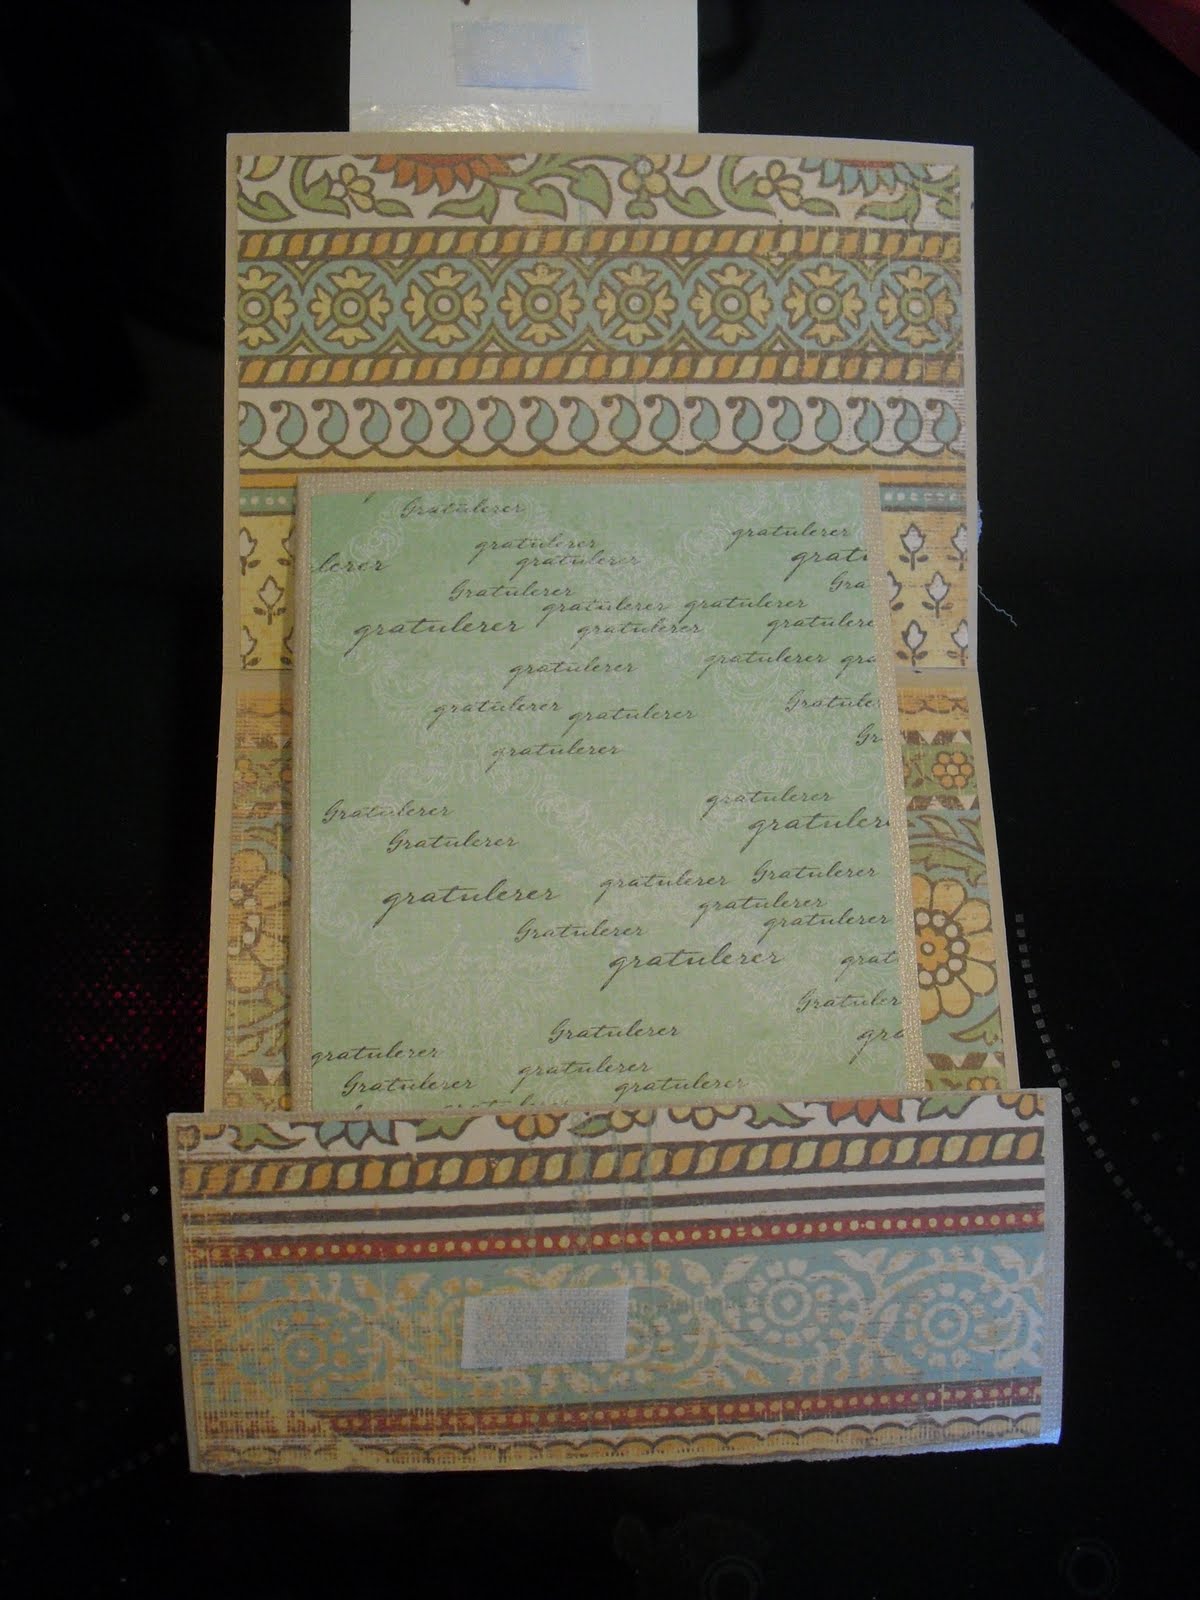 Gratulerer
gratulerer
gratulerer
gratulerer
lerer
grat
Gratulerer
Gra
gratulerer
gratulerer
gratulerer
gratulerer
gratulere
gratulerer
gratulerer
gra
gratulerer
gratulerer
Gratulere
gratulerer
Gr
gratulerer
gratulerer
Gratulerer
gratuler
Gratulerer
gratulerer
Gratulerer
gratulerer
gratulerer
gratulerer
Gratulerer
gratulerer
grat
Gratuler
Gratulerer
gra
gratulerer
gratulerer
Gratulerer
gratulerer